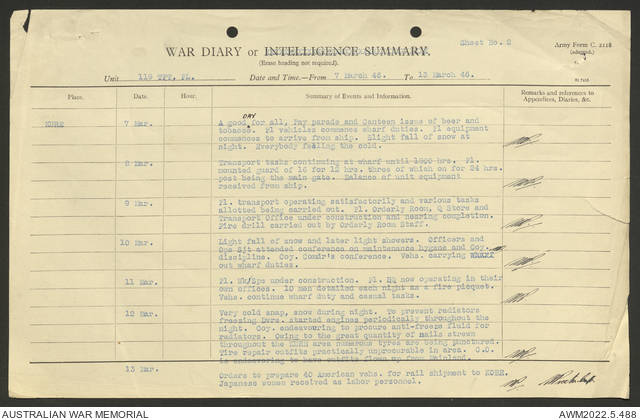 Sheet No. 2
Army Form C. 2118
(adapted.)
WAR DIARY or INTELLIGENCE SUMMARY.
(Erase heading not required).
Unit 119 TPT. PL. Date and Time.—From 7 March 46. To 13 March 46.
Place. Date. Hour. Summary of Events and Information. Remarks and references to Appendices, Diaries, &c.
KURE 7 Mar. A good DAY for all, Pay parade and Canteen issue of beer and
tobacco. Pl vehicles commence wharf duties. Pl equipment
commences to arrive from ship. Slight fall of snow at
night. Everybody feeling the cold.
8 Mar. Transport tasks continuing at wharf until 1800 hrs. Pl.
mounted guard of 16 for 12 hrs. three of which on for 24 hrs.
post being the main gate. Balance of unit equipment
received from ship.
9 Mar. Pl. transport operating satisfactorily and various tasks
allotted being carried out. Pl. Orderly Room, Q Store and
Transport Office under construction and nearing completion.
Fire drill carried out by Orderly Room Staff.
10 Mar. Light fall of snow and later light showers. Officers and
Ops Sjt attended conference on maintenance hygene and Coy.
discipline. Coy. Comdr's conference. Vehs. carrying
out wharf duties.
11 Mar. Pl. Wk/Sps under construction. Pl. HQ now operating in their
own offices. 10 men detailed each night as a fire picquet.
Vehs. continue wharf duty and casual tasks.
12 Mar. Very cold snap, snow during night. To prevent radiators
freezing Dvrs. started engines periodically throughout the
night. Coy. endeavouring to procure anti-freeze fluid for
radiators. Owing to the great quantity of nails strewn
throughout the KURE area numerous tyres are being punctured.
Tire repair outfits practically unprocurable in area. C.O.
is endeavouring to have outfits flown up from Mainland.
13 Mar. Orders to prepare 40 American vehs. for rail shipment to KOBE.
Japanese women received as labor personnel.
AUSTRALIAN WAR MEMORIAL AWM2022.5.488